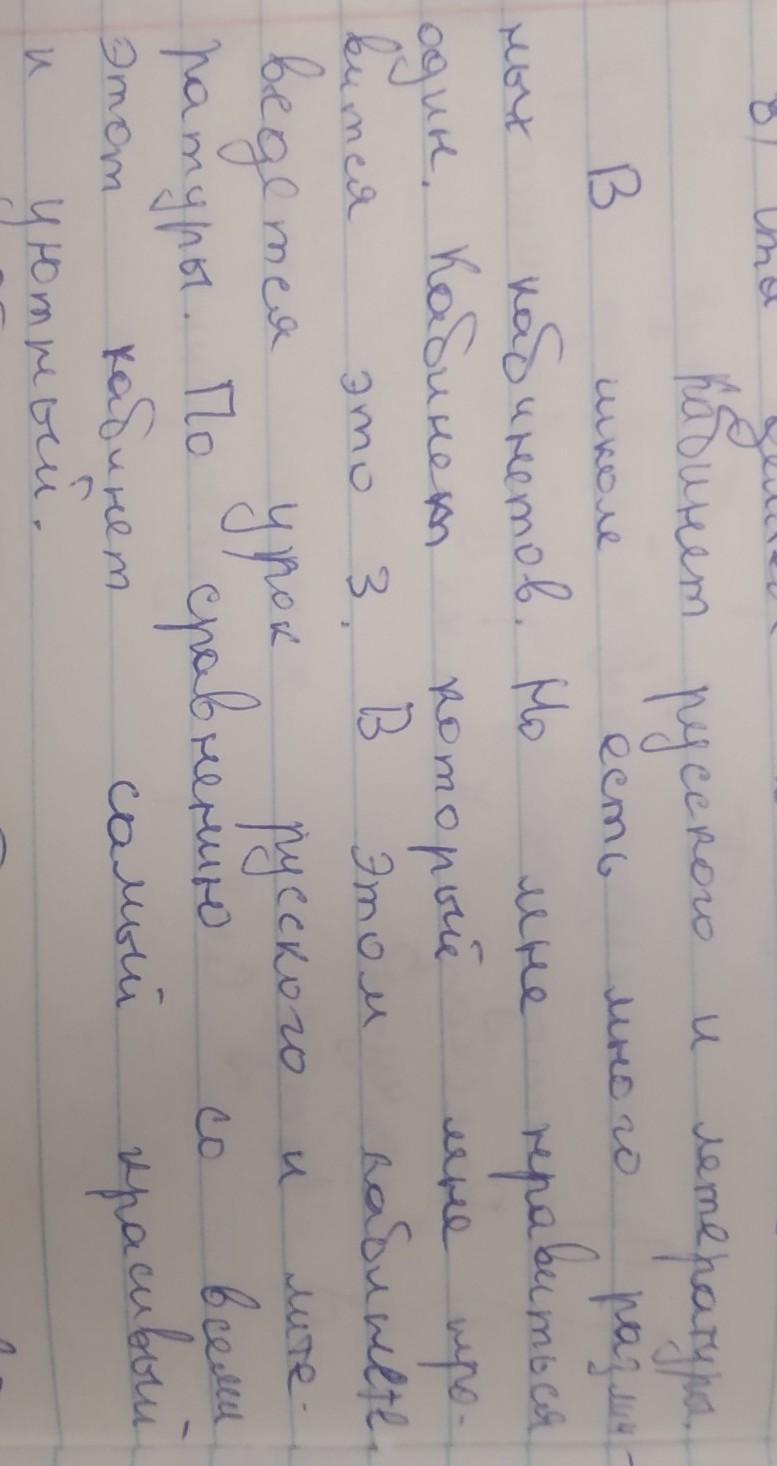 Кабинет русского и летература.
В школе есть много различ-
ных кабинетов. Но мне нравиться
один. Кабинет который мне нра-
вится это 3. В этом кабинете
ведется урок русского и лите-
ратуры. По сравнению со всеми
этот кабинет самый красивый
и уютный.